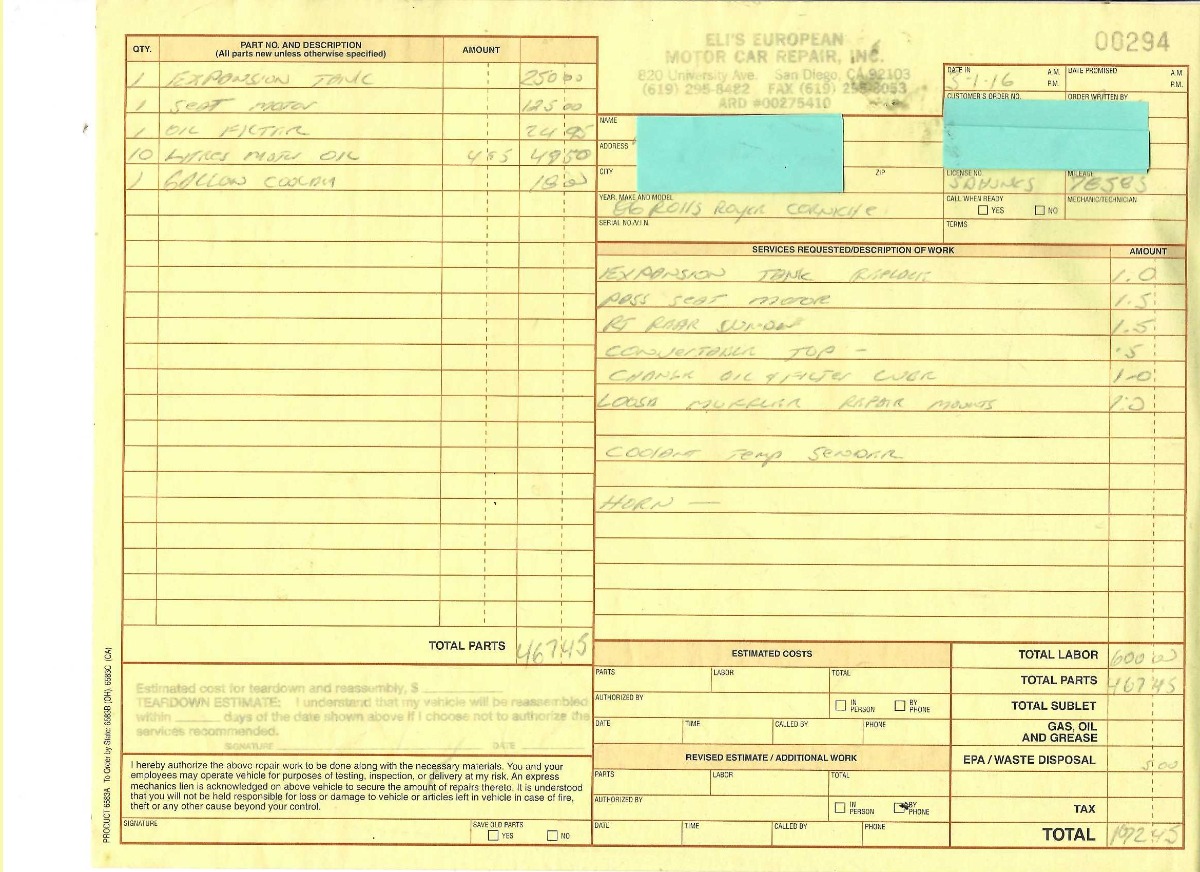 ELI'S EUROPEAN
MOTOR CAR REPAIR, INC.
820 University Ave. San Diego, CA 92103
(619) 295-8482 FAX (619) 295-8053
ARD #00275410
00294
DATE IN
5-1-16
A.M.
P.M.
DATE PROMISED
A.M.
P.M.
CUSTOMER'S ORDER NO.
ORDER WRITTEN BY
NAME
ADDRESS
CITY
ZIP
LICENSE NO.
MILEAGE
78585
YEAR, MAKE AND MODEL
86 ROLLS ROYCE CORNICHE
CALL WHEN READY
YES NO
MECHANIC/TECHNICIAN
SERIAL NO./V.I.N.
TERMS
QTY. PART NO. AND DESCRIPTION AMOUNT
(All parts new unless otherwise specified)
1 EXPANSION TANK 250 00
1 SEAT MOTOR 125 00
1 OIL FILTER 24 95
10 LITRES MOTOR OIL 4 95 49 50
1 GALLON COOLANT 18 00
TOTAL PARTS 467 45
SERVICES REQUESTED/DESCRIPTION OF WORK AMOUNT
EXPANSION TANK REPLACE 1.0
PASS SEAT MOTOR 1.5
RT REAR WINDOW 1.5
TOP - .5
CHANGE OIL & FILTER LUBE 1-0
LOOSE MUFFLER REPAIR MOUNTS 1.0
COOLANT TEMP SENDER
HORN —
Estimated cost for teardown and reassembly, $
TEARDOWN ESTIMATE: I understand that my vehicle will be reassembled
within ____ days of the date shown above if I choose not to authorize the
services recommended.
SIGNATURE DATE
I hereby authorize the above repair work to be done along with the necessary materials. You and your
employees may operate vehicle for purposes of testing, inspection, or delivery at my risk. An express
mechanics lien is acknowledged on above vehicle to secure the amount of repairs thereto. It is understood
that you will not be held responsible for loss or damage to vehicle or articles left in vehicle in case of fire,
theft or any other cause beyond your control.
SIGNATURE
SAVE OLD PARTS
YES NO
ESTIMATED COSTS
PARTS LABOR TOTAL
AUTHORIZED BY
IN PERSON BY PHONE
DATE TIME CALLED BY PHONE
REVISED ESTIMATE / ADDITIONAL WORK
PARTS LABOR TOTAL
AUTHORIZED BY
IN PERSON BY PHONE
DATE TIME CALLED BY PHONE
TOTAL LABOR 600 00
TOTAL PARTS 467 45
TOTAL SUBLET
GAS, OIL
AND GREASE
EPA / WASTE DISPOSAL 5.00
TAX
TOTAL 1072 45
PRODUCT 6583A To Order by State: 6583B (OH), 6583C (CA)